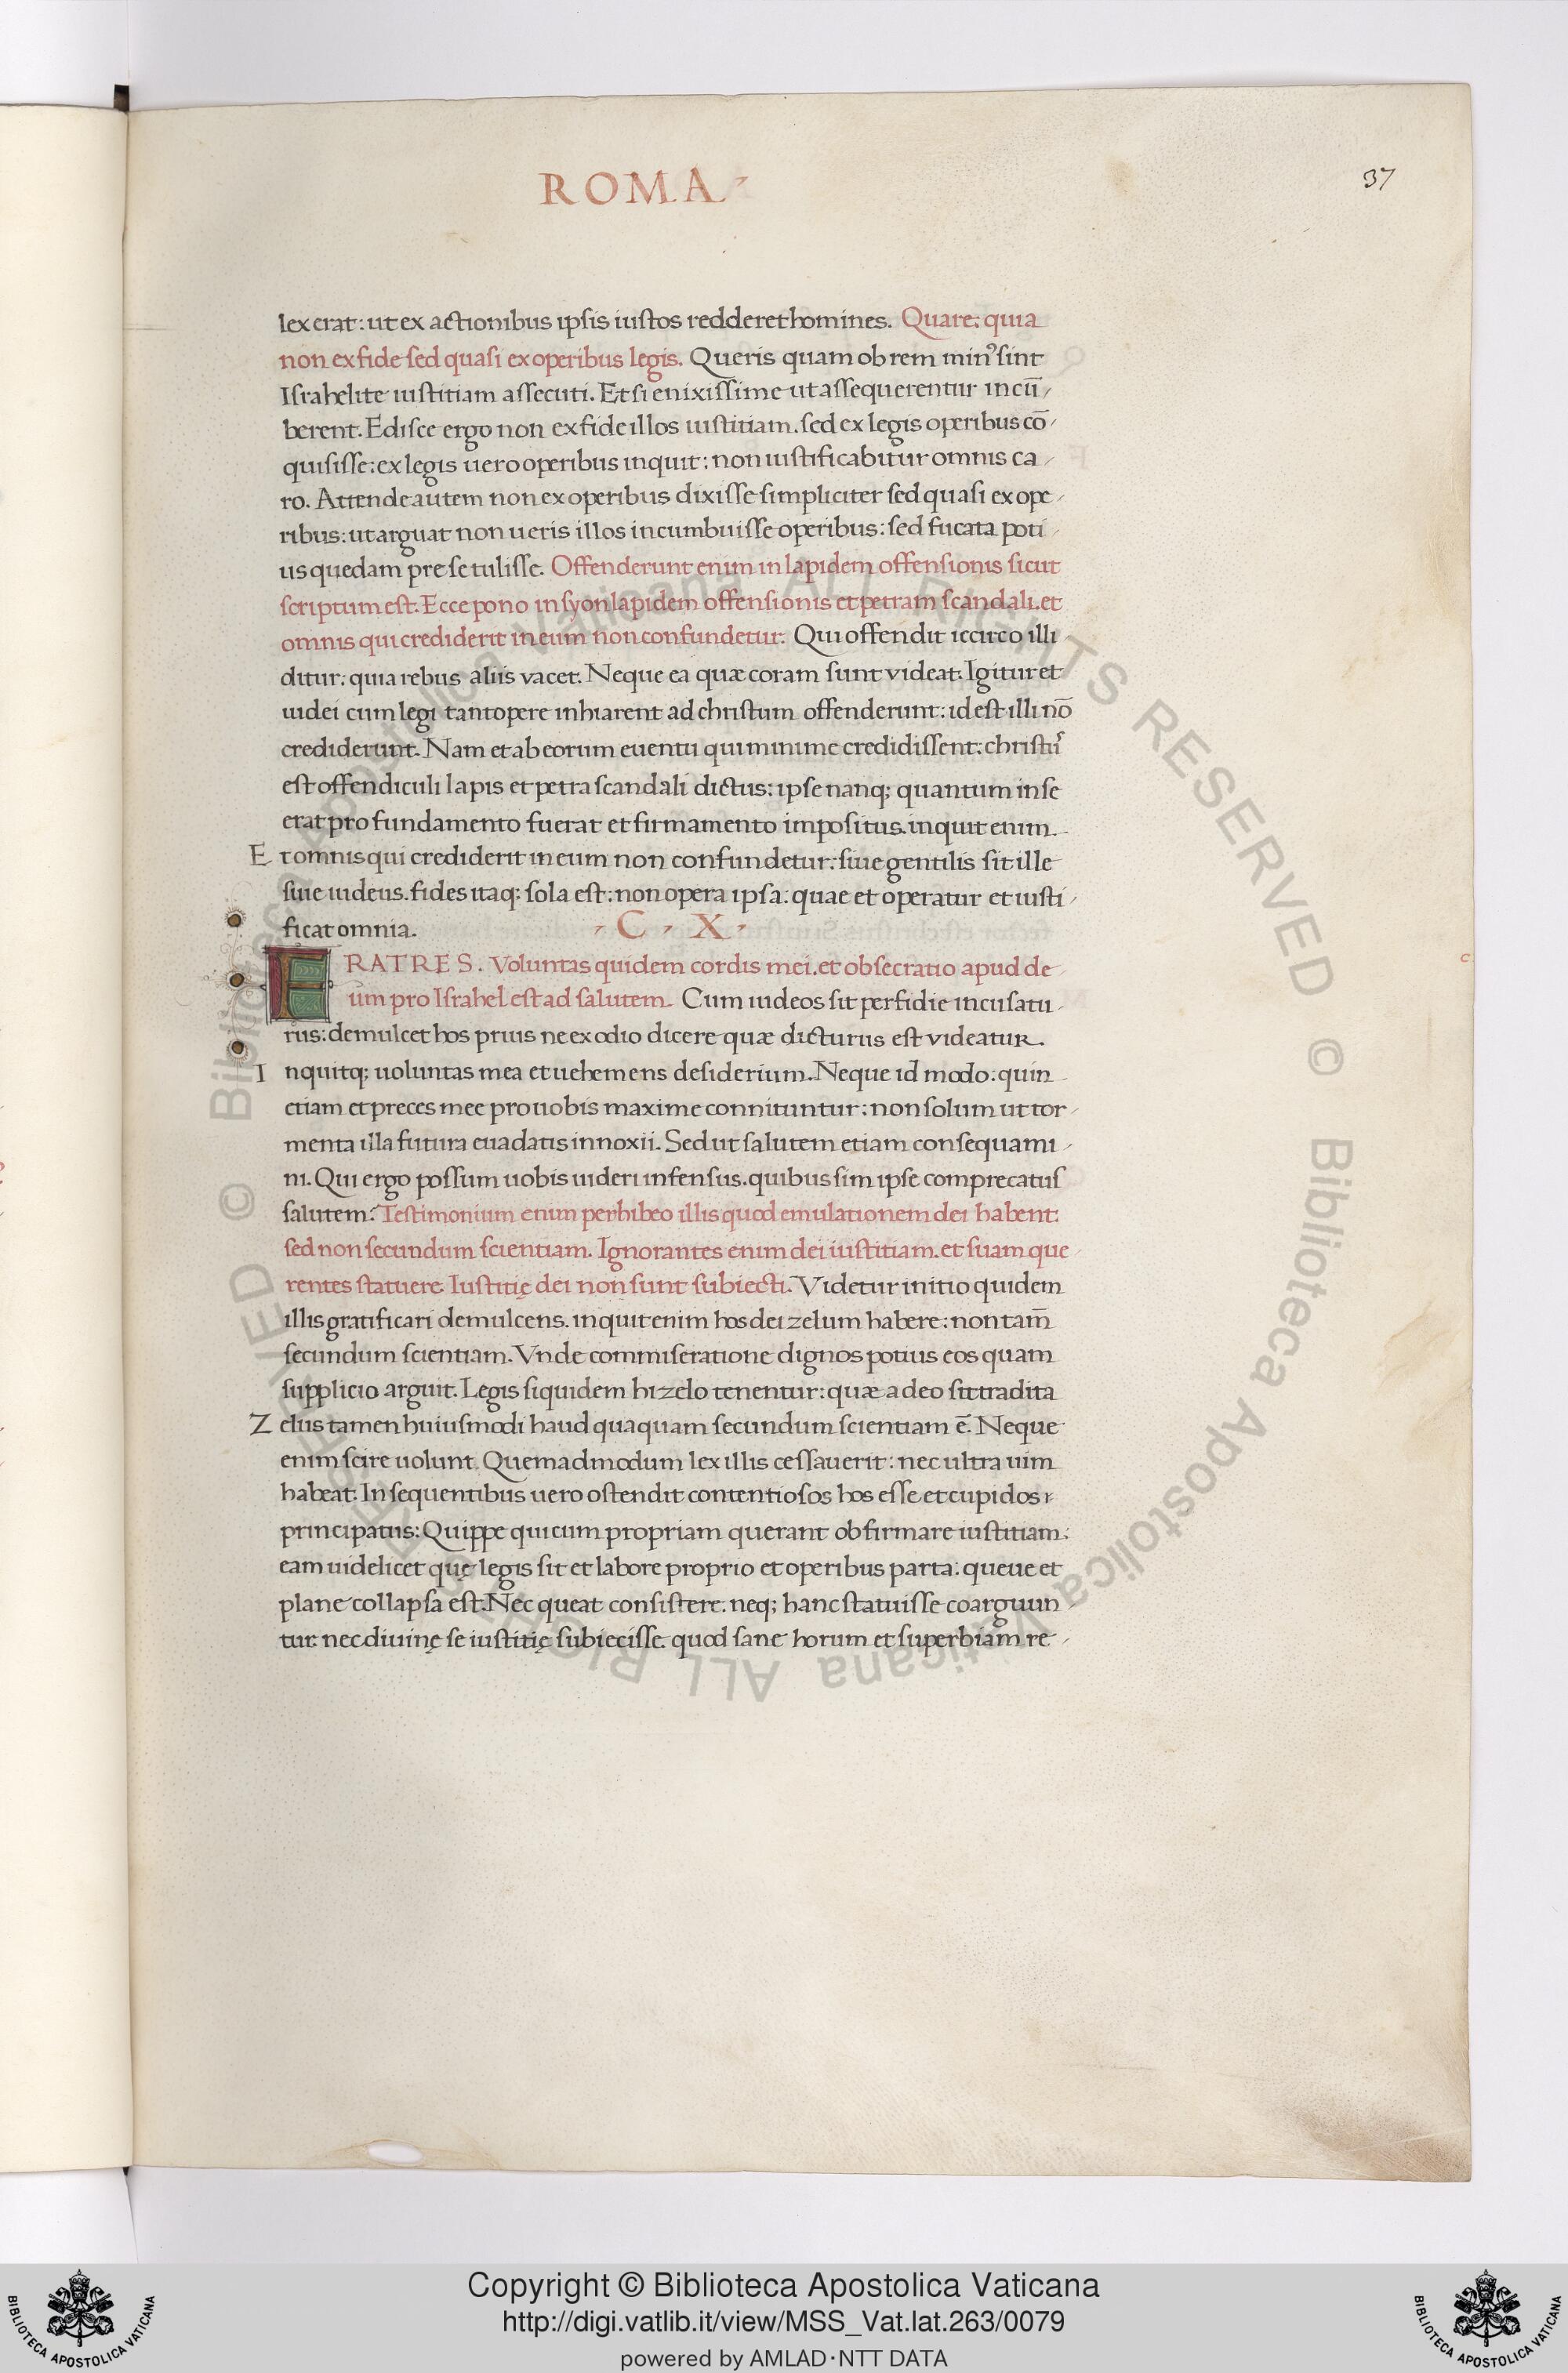 ROMA
37
lex erat: ut ex actionibus ipsis iustos redderet homines. Quare: quia
non ex fide sed quasi ex operibus legis. Queris quam ob rem min⁹ sint
Israhelite iustitiam assecuti. Et si enixissime ut assequerentur incū
berent. Edisce ergo non ex fide illos iustitiam. sed ex legis operibus cō
quisisse: ex legis uero operibus inquit: non iustificabitur omnis ca
ro. Attende autem non ex operibus dixisse simpliciter sed quasi ex ope
ribus: ut arguat non ueris illos incumbuisse operibus: sed fucata poti
us quedam pre se tulisse. Offenderunt enim in lapidem offensionis sicut
scriptum est. Ecce pono in syon lapidem offensionis et petram scandali. et
omnis qui crediderit in eum non confundetur. Qui offendit iccirco illi
ditur: quia rebus aliis vacet. Neque ea quæ coram sunt videat. Igitur et
iudei cum legi tantopere inhiarent ad christum offenderunt: id est illi nō
crediderunt. Nam et ab eorum euentu qui minime credidissent: christu᷒
est offendiculi lapis et petra scandali dictus: ipse nanq; quantum in se
erat pro fundamento fuerat et firmamento impositus. inquit enim
Et omnis qui crediderit in eum non confundetur: siue gentilis sit ille
siue iudeus. fides itaq; sola est: non opera ipsa: quae et operatur et iusti
ficat omnia. C X
FRATRES. Voluntas quidem cordis mei. et obsecratio apud de
um pro Israhel est ad salutem. Cum iudeos sit perfidie incusatu
rus: demulcet hos prius ne ex odio dicere quæ dicturus est videatur.
Inquitq; uoluntas mea et uehemens desiderium. Neque id modo: quin
etiam et preces mee pro uobis maxime connituntur: non solum ut tor
menta illa futura euadatis innoxii. Sed ut salutem etiam consequami
ni. Qui ergo possum uobis uideri infensus. quibus sim ipse comprecatus
salutem? Testimonium enim perhibeo illis quod emulationem dei habent:
sed non secundum scientiam. Ignorantes enim dei iustitiam. et suam que
rentes statuere. Iustitię dei non sunt subiecti. Videtur initio quidem
illis gratificari demulcens. inquit enim hos dei zelum habere: non tam̄
secundum scientiam. Vnde commiseratione dignos potius eos quam
supplicio arguit. Legis siquidem hi zelo tenentur: quæ a deo sit tradita
Zelus tamen huiusmodi haud quaquam secundum scientiam ē. Neque
enim scire uolunt. Quemadmodum lex illis cessauerit: nec ultra uim
habeat. In sequentibus uero ostendit contentiosos hos esse et cupidos
principatus: Quippe qui cum propriam querant obfirmare iustitiam:
eam uidelicet quę legis sit et labore proprio et operibus parta: queue et
plane collapsa est. Nec queat consistere. neq; hanc statuisse coarguun
tur: nec diuinę se iustitię subiecisse. quod sane horum et superbiam re
© Biblioteca Apostolica Vaticana ALL RIGHTS RESERVED © Biblioteca Apostolica Vaticana ALL RIGHTS RESERVED
Copyright © Biblioteca Apostolica Vaticana
http://digi.vatlib.it/view/MSS_Vat.lat.263/0079
powered by AMLAD·NTT DATA
BIBLIOTECA APOSTOLICA VATICANA
BIBLIOTECA APOSTOLICA VATICANA